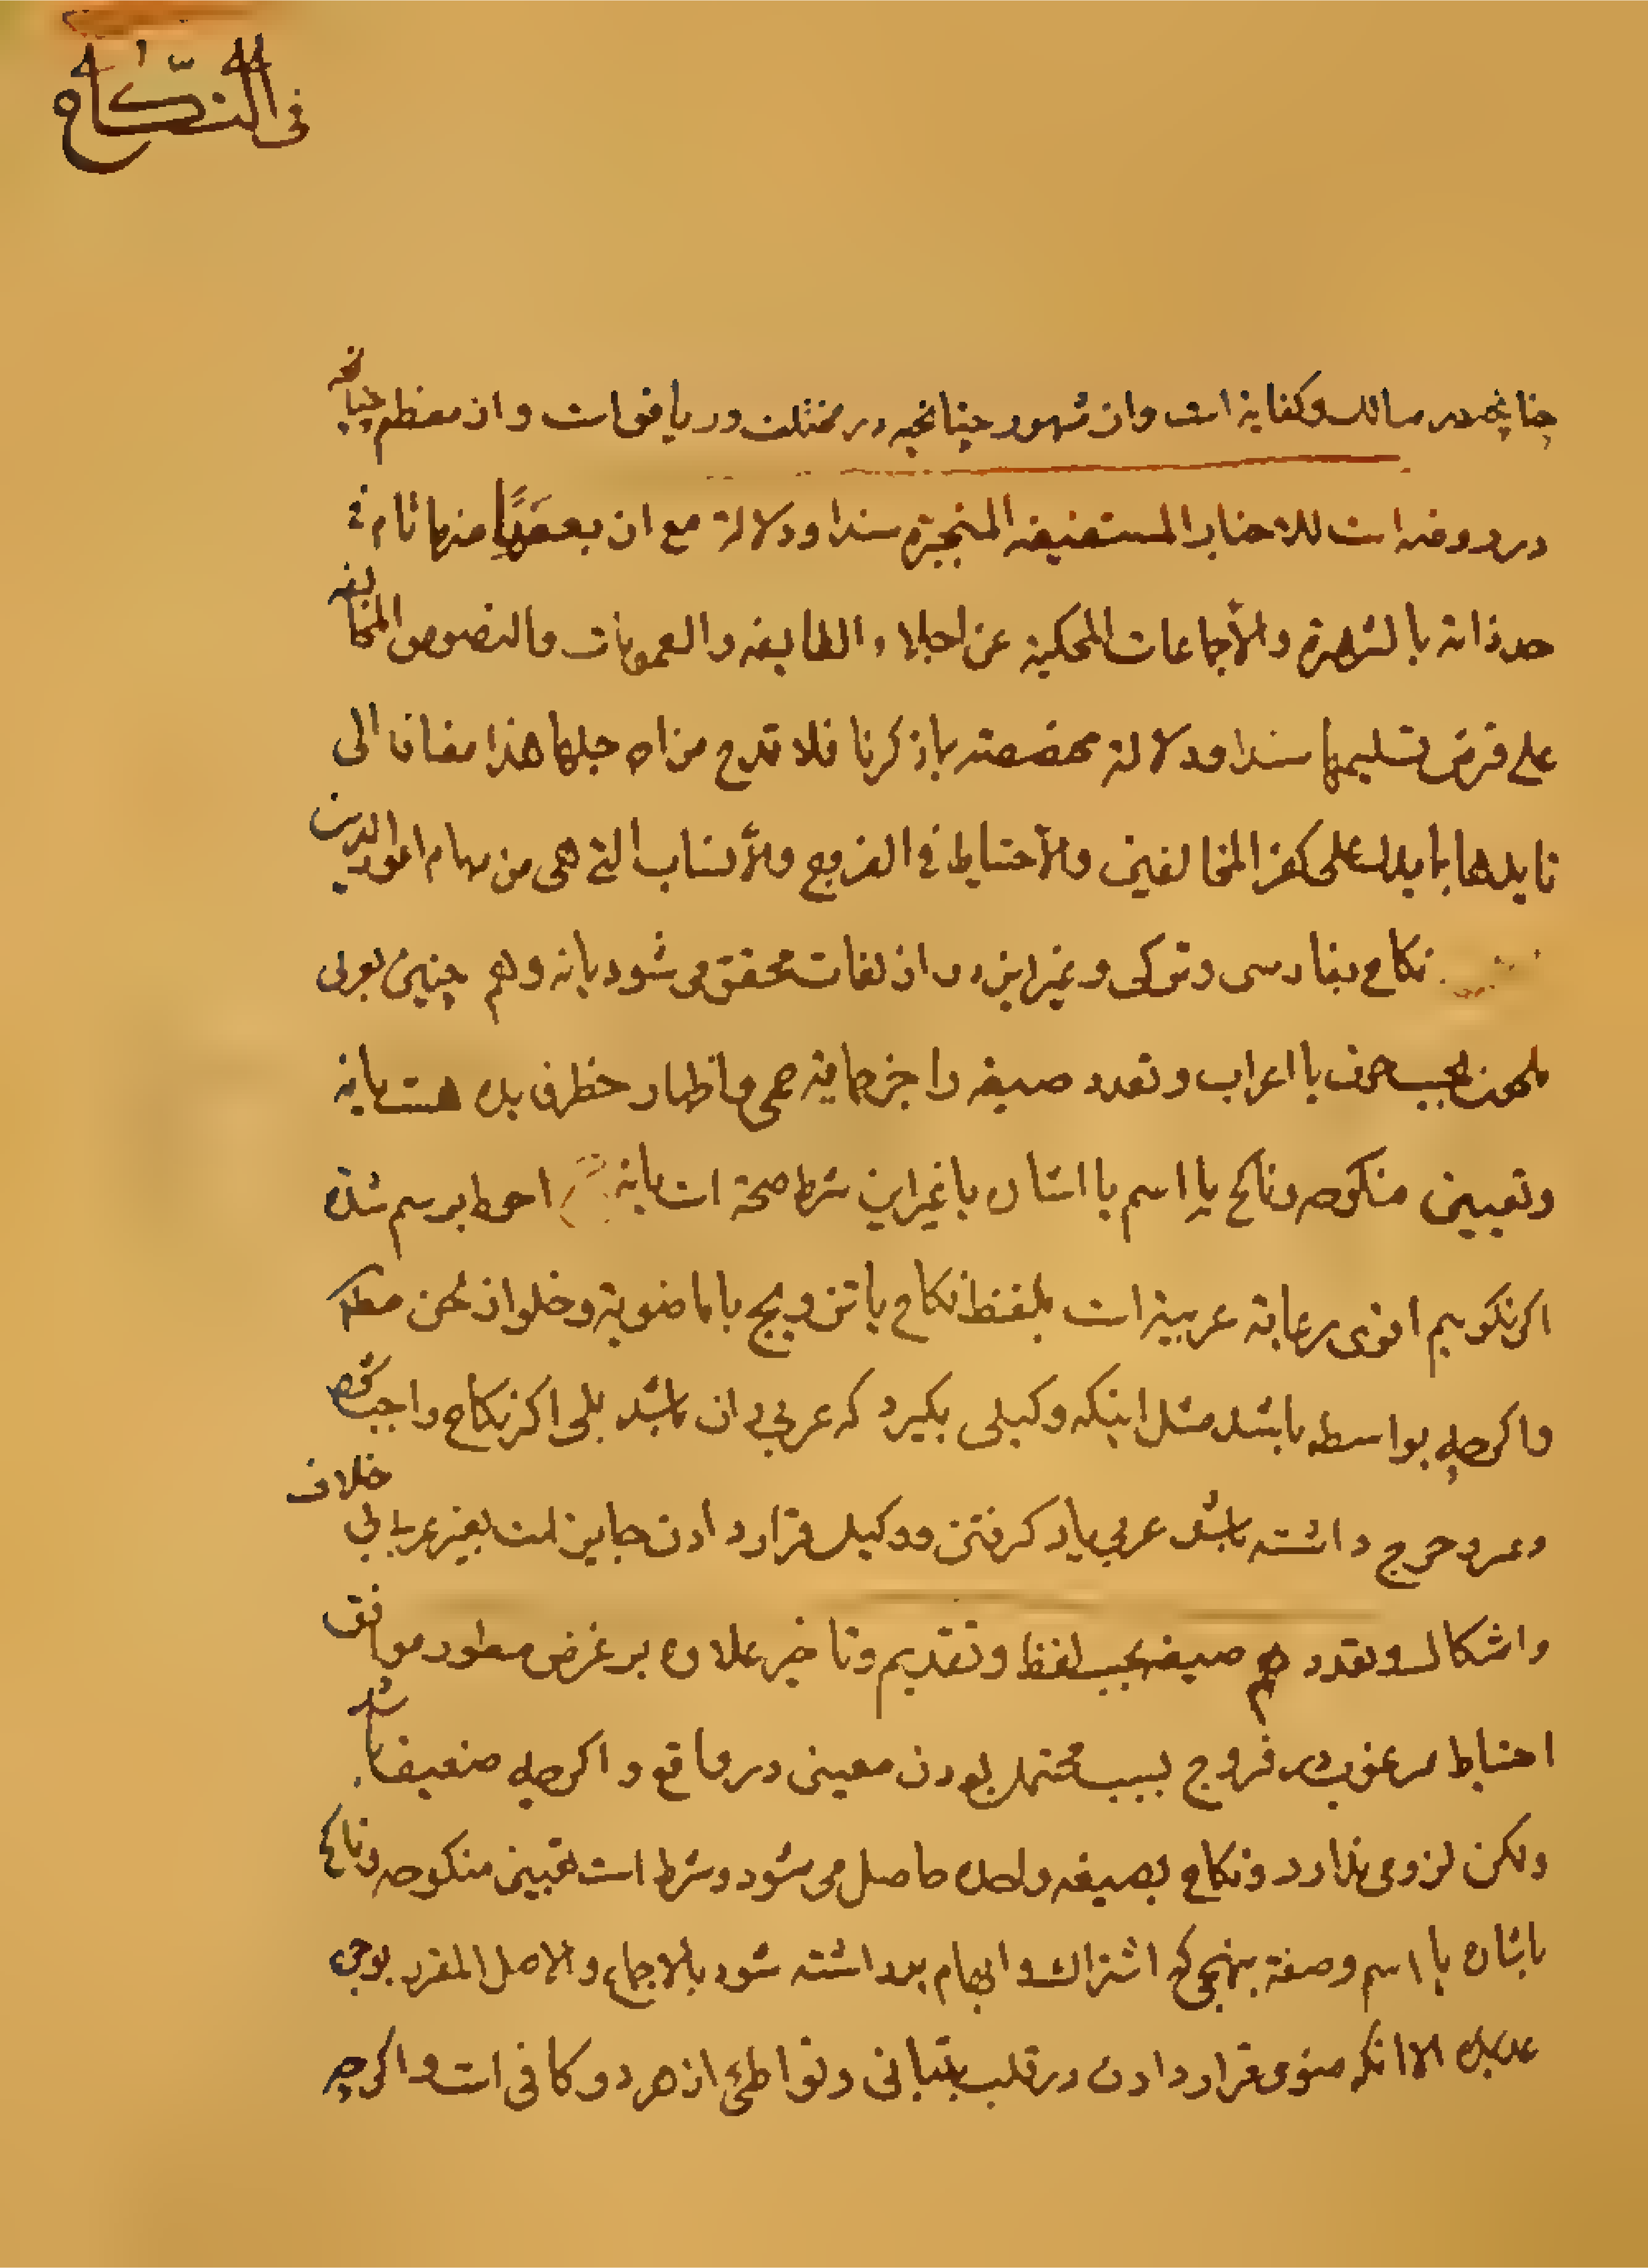 فی النکاح
چنانچه در مسالك و کفایة است و از مشهور چنانچه در مختلف و ریاض است و از معظم چنانچه
در روضه است للاخبار المستفیضه المنجبرة سندا و دلالة مع ان بعضها منها تام فی
حد ذاته بالشهرة و الأجماعات المحکیة عن اجلاء الطایفه و العمومات و النصوص المخالفه
علی فرض تسلیمها سندا و دلالة مخصصته بما ذکرنا فلا تقدح من اه جلها هذا مضافا الی
تایدها بما یدل علی کفر المخالفین و الأحتیاط فی الفروج و الأنساب التی هی من مهام امور الدین
نکاح بفارسی و ترکی و غیر این در از لغات محقق می شود یا نه و هم چنین بعربی
ملحون بحسب حرف یا اعراب و تعدد صیغه را جز حمایة حمی و اظهار حظر فی بده هست یا نه
و تعیین منکوحه و ناکح یا اسم یا اشاره یا غیر این شرط صحة است یا نه احوط بر سم شده
اگر نگویم اقوی رعایة عربیة است بلفظ نکاح یا تزویج با ماضویة و خلو از لحن مطلقا
و اگرچه بواسطه باشد مثل اینکه وکیلی بگیرد که عربی دان باشد بلی اگر نکاح واجب شود
و عسر و حرج داشته باشد عربی یاد گرفتن و وکیل قرار دادن جایز است بغیر عربی بی خلاف
و اشکال و تعدد هم صیغه بحسب لفظ و تقدیم و تاخیر علاوه بر غرض مسطور موافق
احتیاط مرغوب در فروج بسبب محتمل بودن معینی در واقع و اگرچه ضعیف باشد
ولکن لزومی ندارد و نکاح بصیغه واحده حاصل می شود و شرط است تعیین منکوحه و ناکح
باشاره یا اسم و صفة بنهجی که اشتراك و ابهام برداشته شود بالاجماع و الاصل المقرر بوجوه
عدیده الا انکه منوی قرار دادن در قلب بتبانی و تواطی از هر دو کافی است و اگرچه